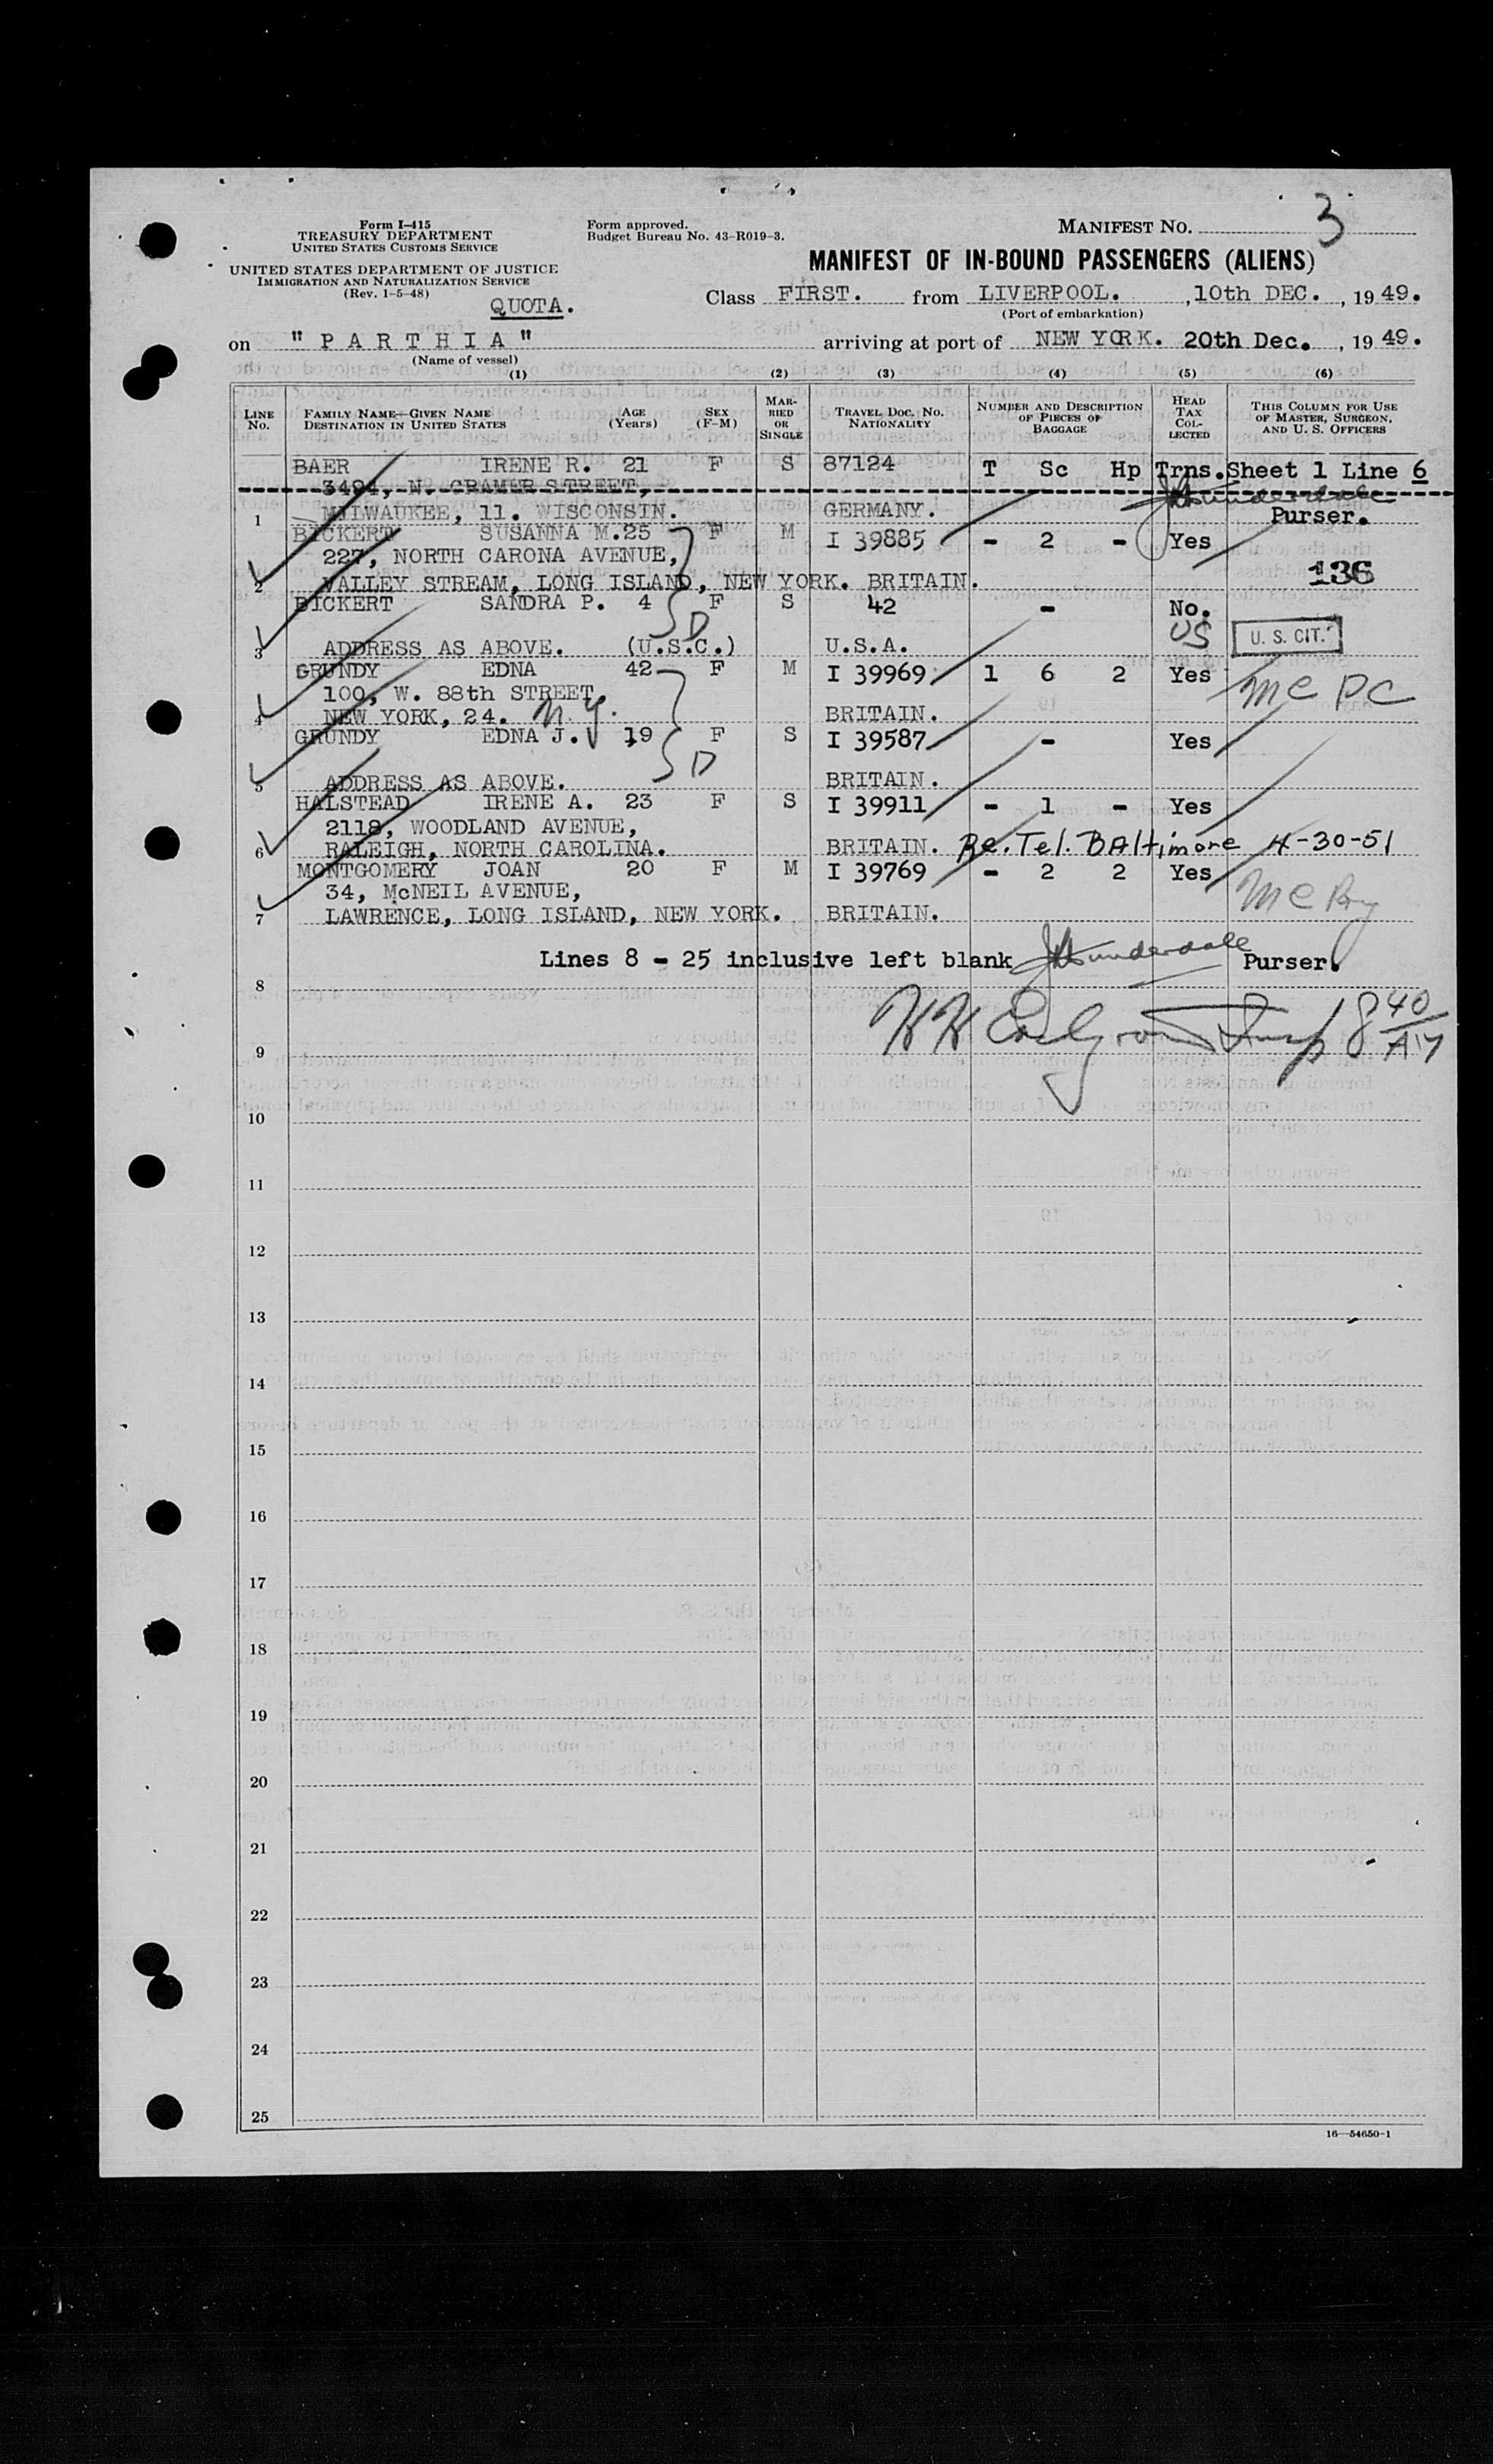 Form I-415
TREASURY DEPARTMENT
UNITED STATES CUSTOMS SERVICE
Form approved.
Budget Bureau No. 43-R019-3.
MANIFEST NO. 3
UNITED STATES DEPARTMENT OF JUSTICE
IMMIGRATION AND NATURALIZATION SERVICE
(Rev. 1-5-48)
QUOTA.
MANIFEST OF IN-BOUND PASSENGERS (ALIENS)
Class FIRST. from LIVERPOOL. , 10th DEC. , 19 49.
(Port of embarkation)
on " P A R T H I A " arriving at port of NEW YORK. 20th Dec. , 19 49.
(Name of vessel)
(1) (2) (3) (4) (5) (6)
LINE No. FAMILY NAME—GIVEN NAME DESTINATION IN UNITED STATES AGE (Years) SEX (F-M) MARRIED OR SINGLE TRAVEL DOC. NO. NATIONALITY NUMBER AND DESCRIPTION OF PIECES OF BAGGAGE HEAD TAX COLLECTED THIS COLUMN FOR USE OF MASTER, SURGEON, AND U. S. OFFICERS
BAER IRENE R. 21 F S 87124 T Sc Hp Trns. Sheet 1 Line 6
3494, N. CRAMER STREET,
1 MILWAUKEE, 11. WISCONSIN. GERMANY. Purser.
BICKERT SUSANNA M. 25 F M I 39885 - 2 - Yes
227, NORTH CARONA AVENUE,
2 VALLEY STREAM, LONG ISLAND, NEW YORK. BRITAIN. 136
BICKERT SANDRA P. 4 F S 42 - No.
SD US
3 ADDRESS AS ABOVE. (U.S.C.) U.S.A. U. S. CIT.
GRUNDY EDNA 42 F M I 39969 1 6 2 Yes
100, W. 88th STREET,
4 NEW YORK, 24. N.Y. BRITAIN.
GRUNDY EDNA J. 19 F S I 39587 - Yes
SD
5 ADDRESS AS ABOVE. BRITAIN.
HALSTEAD IRENE A. 23 F S I 39911 - 1 - Yes
2118, WOODLAND AVENUE,
6 RALEIGH, NORTH CAROLINA. BRITAIN. Re. Tel. BAltimore 4-30-51
MONTGOMERY JOAN 20 F M I 39769 - 2 2 Yes
34, McNEIL AVENUE,
7 LAWRENCE, LONG ISLAND, NEW YORK. BRITAIN.
Lines 8 - 25 inclusive left blank Purser.
8
9
10
11
12
13
14
15
16
17
18
19
20
21
22
23
24
25
16—54650-1